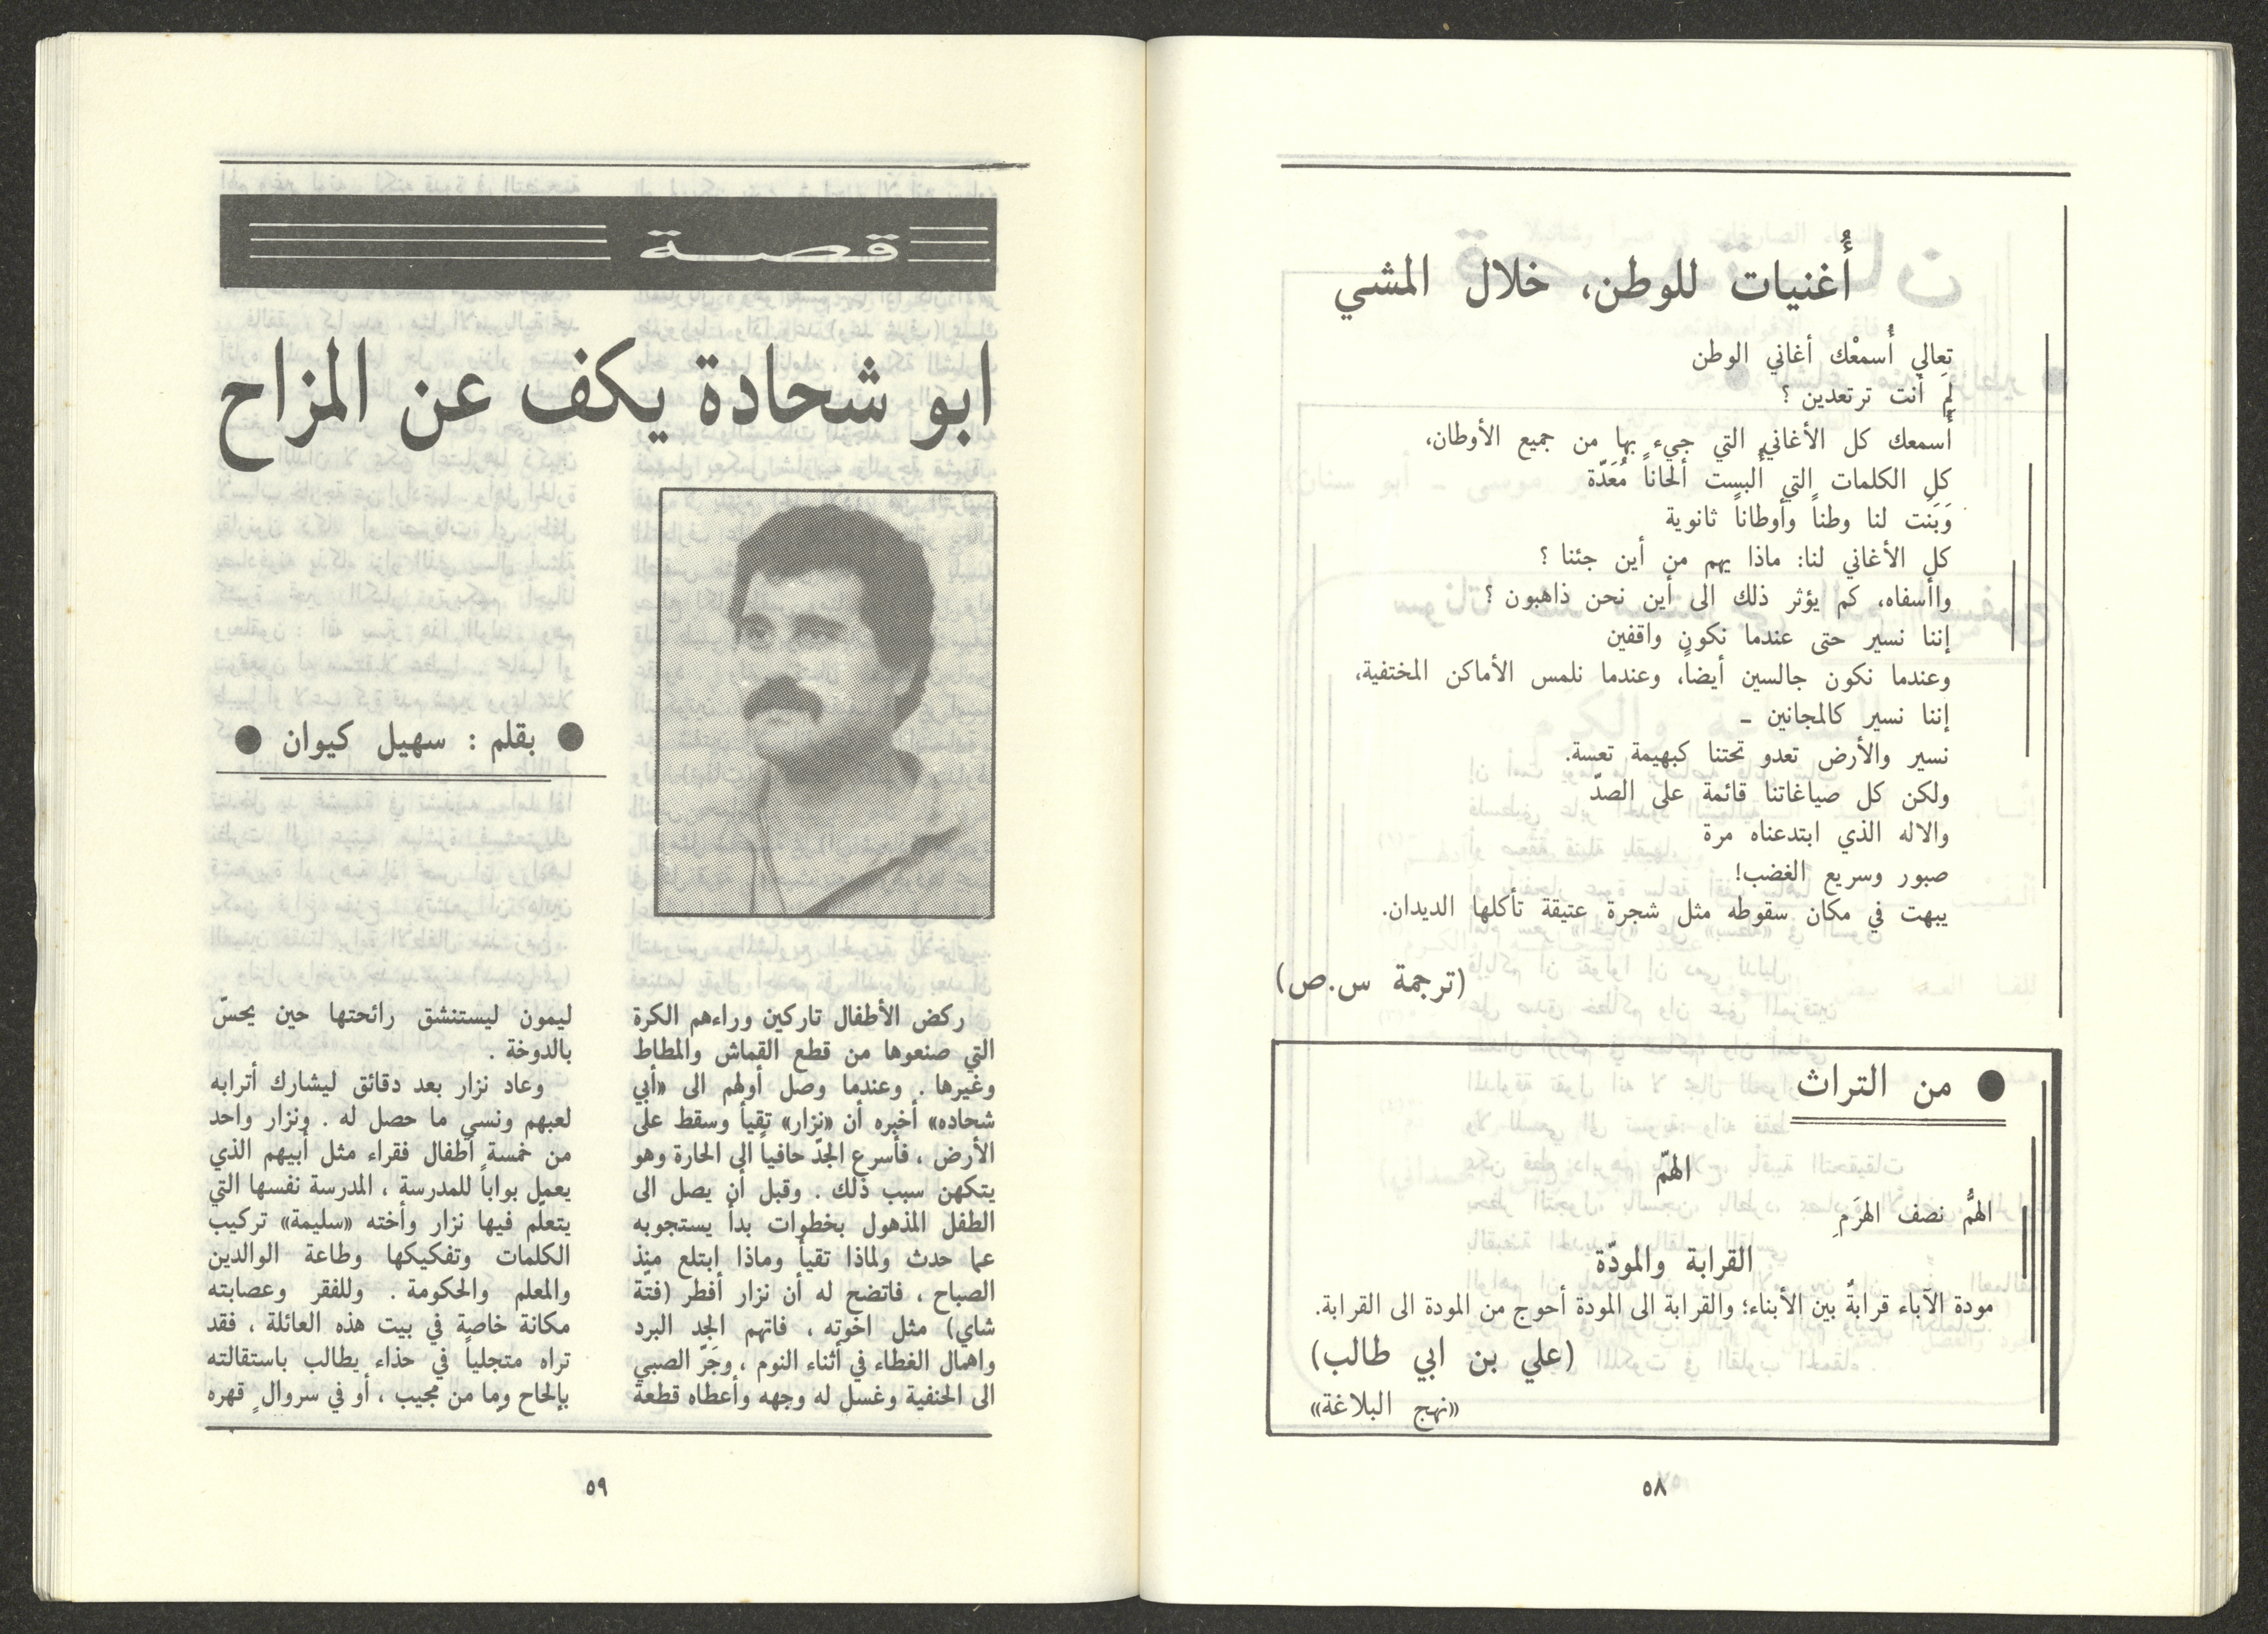 أُغنيات للوطن، خلال المشي
تعالي أُسمعْك أغاني الوطن
لِمَ أنت ترتعدين ؟
أُسمعك كل الأغاني التي جيء بها من جميع الأوطان،
كل الكلمات التي أُلبست ألحاناً مُعَدّة
وَبَنَت لنا وطناً وأوطاناً ثانوية
كل الأغاني لنا: ماذا يهم من أين جئنا ؟
واأسفاه، كم يؤثر ذلك الى أين نحن ذاهبون ؟
إننا نسير حتى عندما نكون واقفين
وعندما نكون جالسين أيضاً، وعندما نلمس الأماكن المختفية،
إننا نسير كالمجانين ـ
نسير والأرض تعدو تحتنا كبهيمة تعسة.
ولكن كل صياغاتنا قائمة على الصدّ
والاله الذي ابتدعناه مرة
صبور وسريع الغضب!
يبهت في مكان سقوطه مثل شجرة عتيقة تأكلها الديدان.
(ترجمة س.ص)
● من التراث
الهمّ
الهمُّ نصف الهرَمِ
القرابة والمودّة
مودة الآباء قرابةٌ بين الأبناء؛ والقرابة الى المودة أحوج من المودة الى القرابة.
(علي بن ابي طالب)
«نهج البلاغة»
٥٨
قصة
ابو شحادة يكف عن المزاح
● بقلم : سهيل كيوان ●
ركض الأطفال تاركين وراءهم الكرة
التي صنعوها من قطع القماش والمطاط
وغيرها . وعندما وصل أولهم الى «أبي
شحاده» أخبره أن «نزار» تقيأ وسقط على
الأرض ، فأسرع الجدّ حافياً الى الحارة وهو
يتكهن سبب ذلك . وقبل أن يصل الى
الطفل المذهول بخطوات بدأ يستجوبه
عما حدث ولماذا تقيأ وماذا ابتلع منذ
الصباح ، فاتضح له أن نزار أفطر (فتّة
شاي) مثل اخوته ، فاتهم الجد البرد
واهمال الغطاء في أثناء النوم ، وجَرّ الصبي
الى الحنفية وغسل له وجهه وأعطاه قطعة
ليمون ليستنشق رائحتها حين يحسّ
بالدوخة .
وعاد نزار بعد دقائق ليشارك أترابه
لعبهم ونسي ما حصل له . ونزار واحد
من خمسة أطفال فقراء مثل أبيهم الذي
يعمل بواباً للمدرسة ، المدرسة نفسها التي
يتعلّم فيها نزار وأخته «سليمة» تركيب
الكلمات وتفكيكها وطاعة الوالدين
والمعلم والحكومة . وللفقر وعصابته
مكانة خاصة في بيت هذه العائلة ، فقد
تراه متجلياً في حذاء يطالب باستقالته
بإلحاح وما من مجيب ، أو في سروال قهره
٥٩